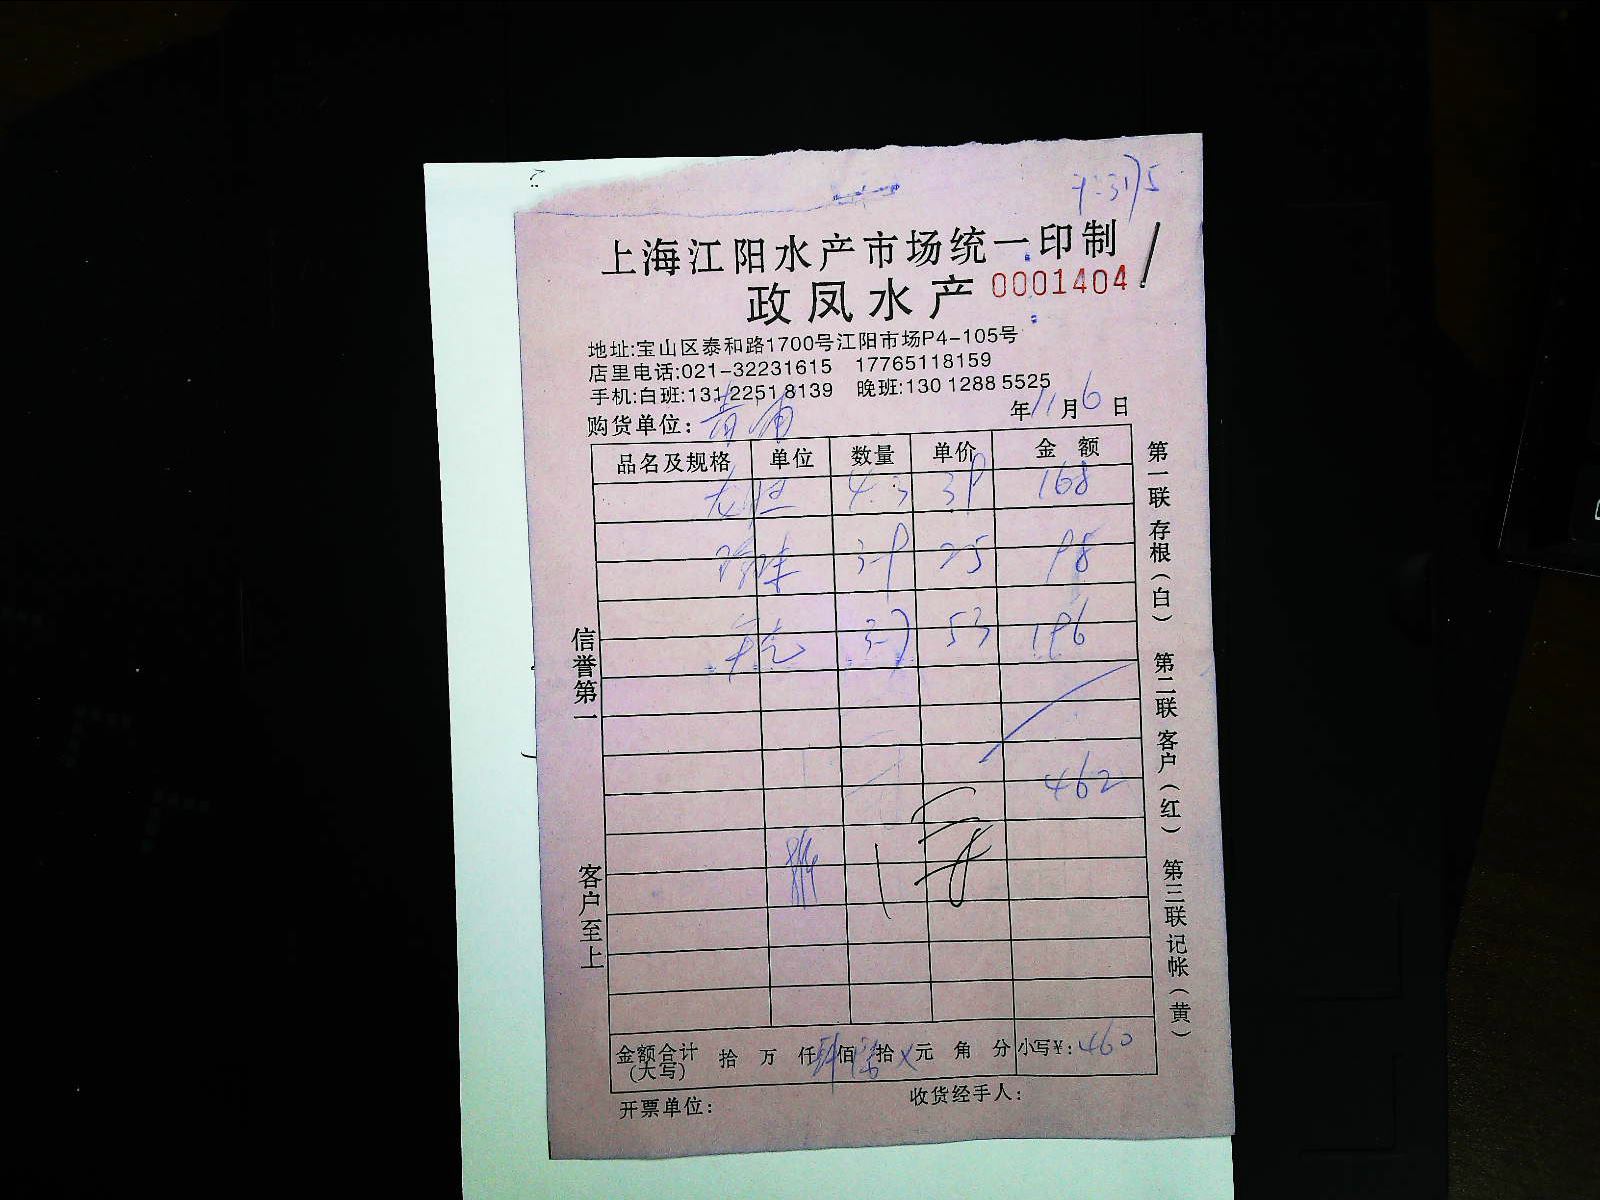 上海江阳水产市场统一印制
政凤水产 0001404
地址:宝山区泰和路1700号江阳市场P4-105号
店里电话:021-32231615 17765118159
手机:白班:131 2251 8139 晚班:130 1288 5525
购货单位: 青浦 年11月6日
品名及规格 单位 数量 单价 金额
4.3 39 168
39 25 98
37 53 196
462
金额合计(大写) 拾 万 仟 肆佰 陆拾 元 角 分 小写¥: 460
开票单位: 收货经手人:
信誉第一 客户至上
第一联存根(白) 第二联客户(红) 第三联记帐(黄)